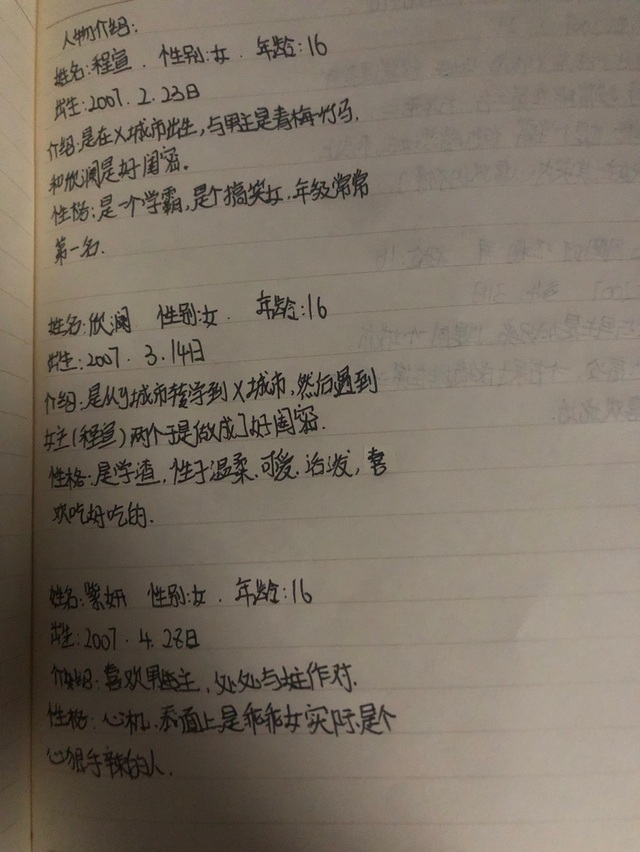 人物介绍:
姓名:程宣. 性别:女. 年龄:16
出生:2007.2.23日
介绍:是在X城市出生,与男主是青梅竹马.
和欣澜是好闺密。
性格:是一个学霸,是个搞笑女,年级常常
第一名.
姓名:欣澜 性别:女. 年龄:16
出生:2007.3.14日
介绍:是从y城市转学到X城市,然后遇到
女主(程宣)两个于是做成了好闺密.
性格:是学渣,性子温柔.可爱.活泼,喜
欢吃好吃的.
姓名:紫妍 性别:女. 年龄:16
出生:2007.4.28日
介绍:喜欢男主,处处与女主作对.
性格:心机.表面上是乖乖女实际是个
心狠手辣的人.